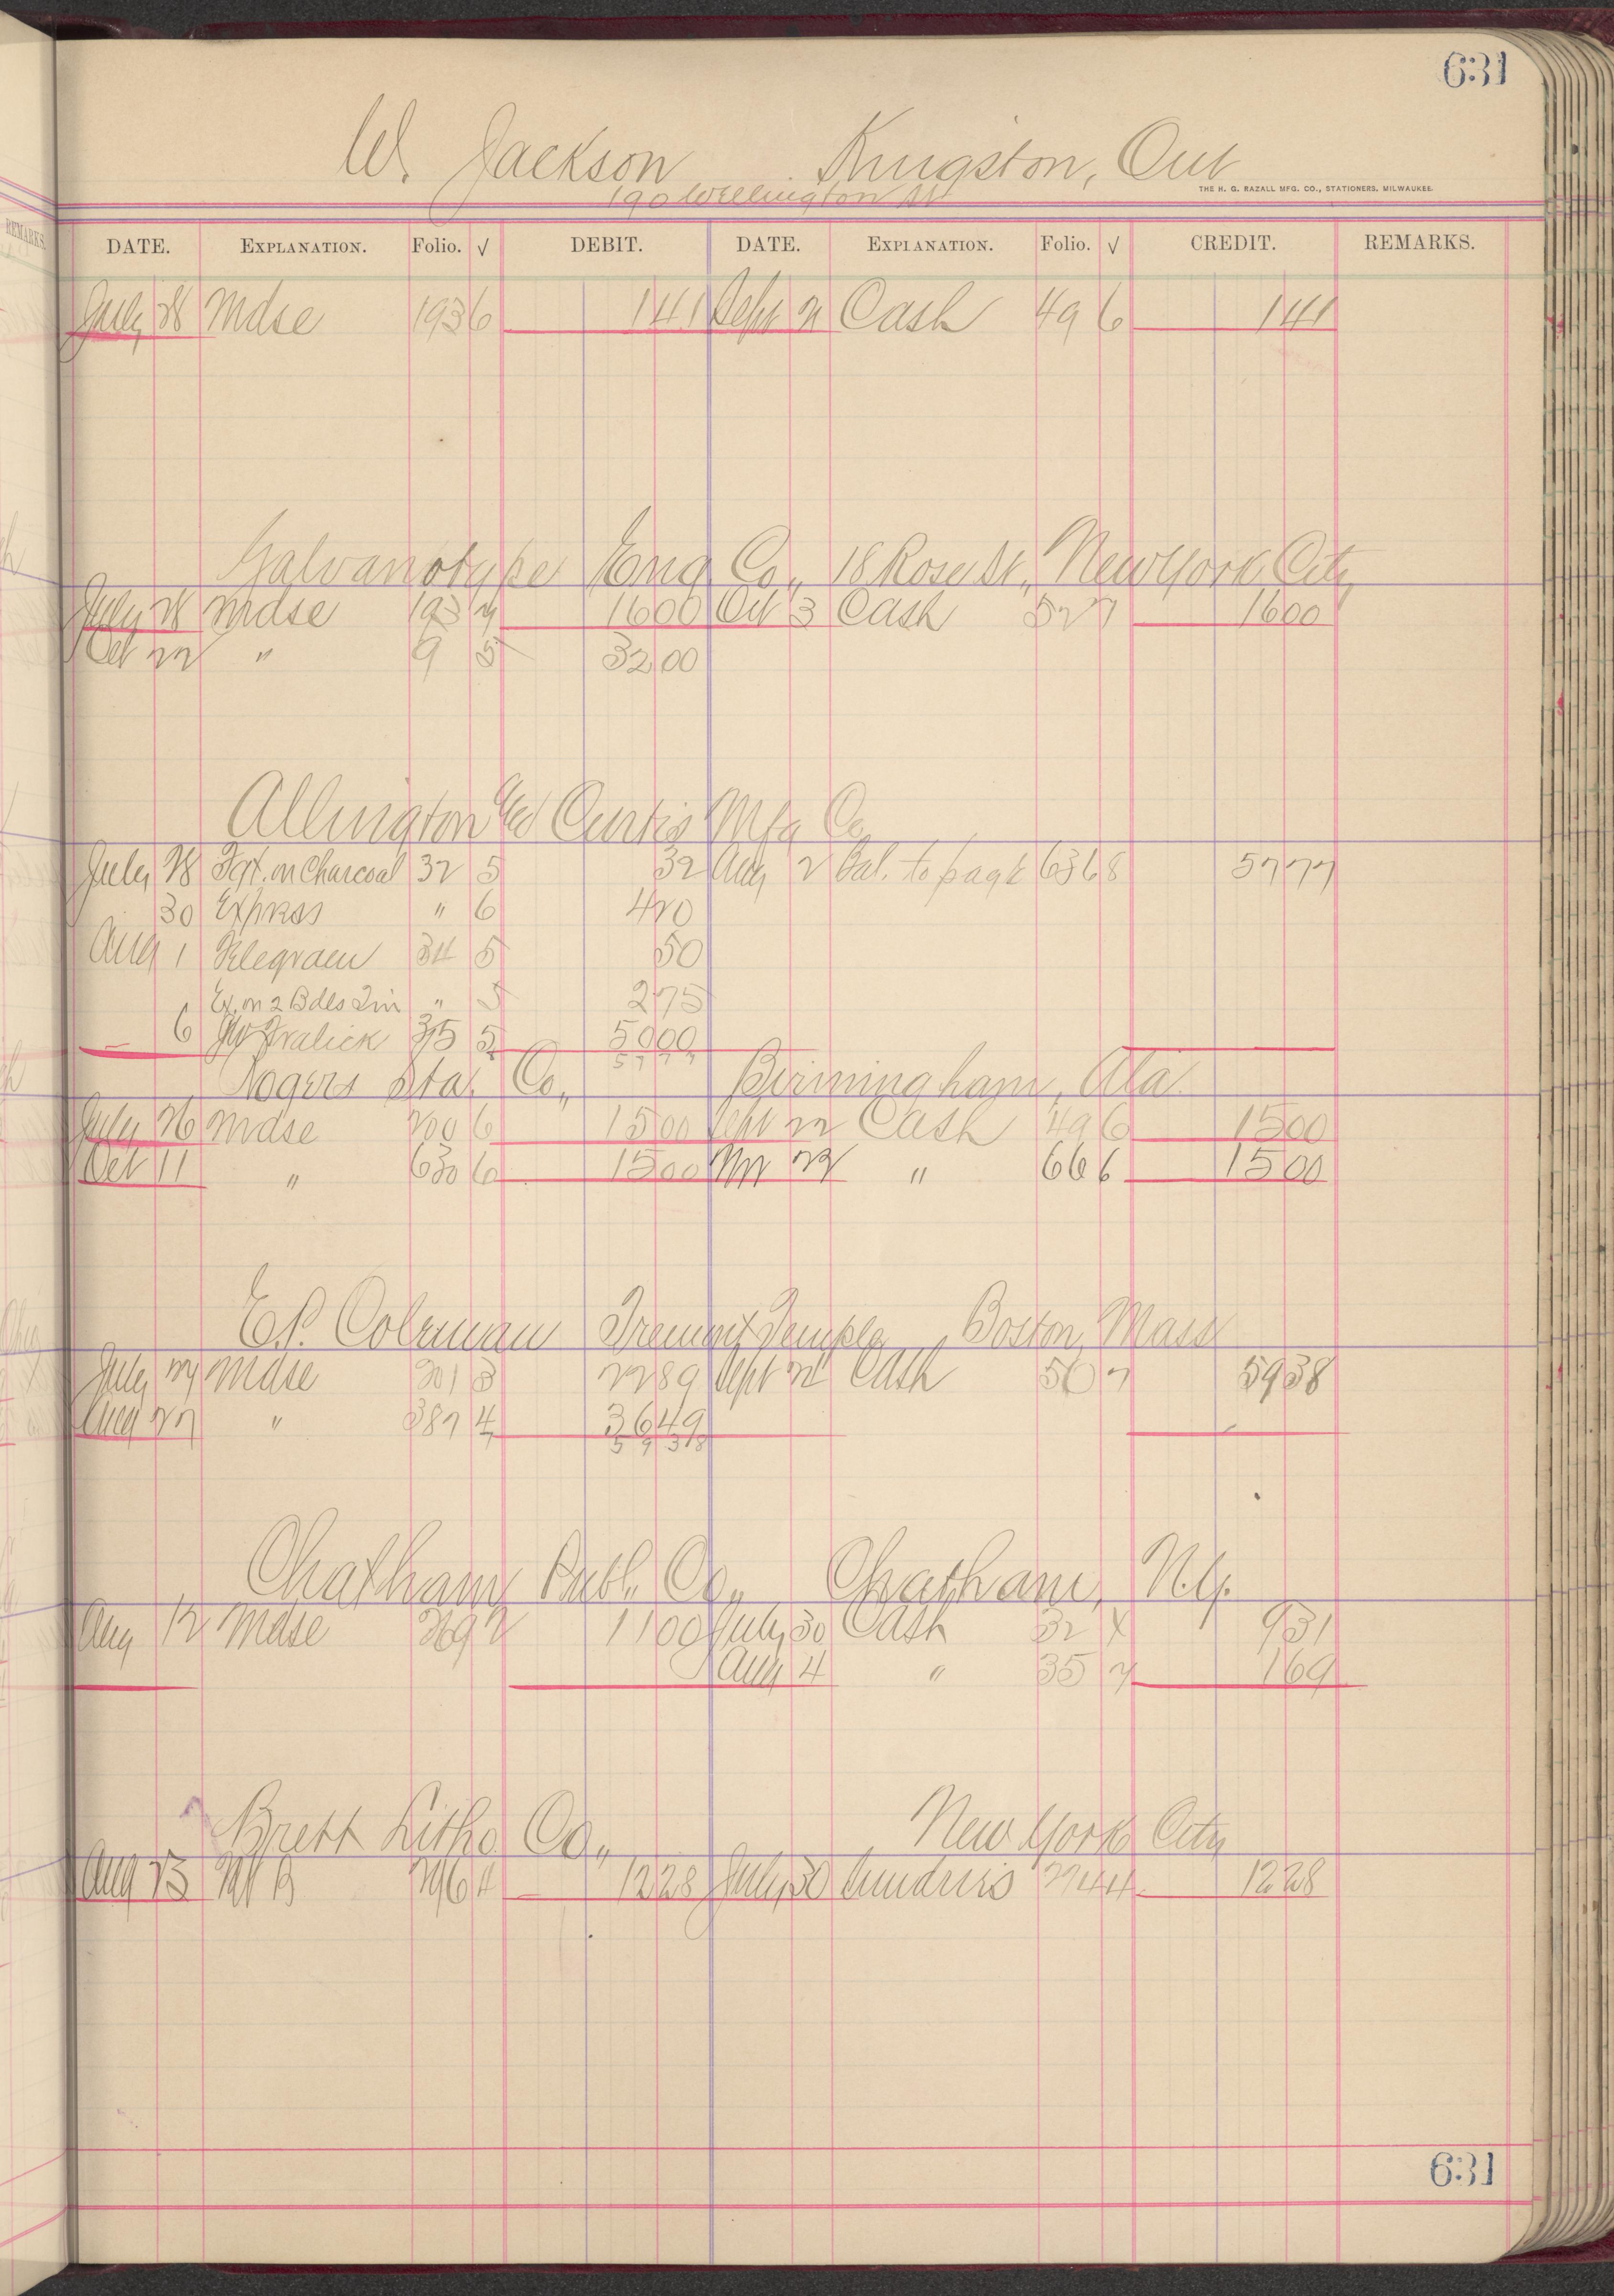 631
W. Jackson Kingston, Ont
190 Wellington St
THE H. G. RAZALL MFG. CO., STATIONERS, MILWAUKEE.
REMARKS.
DATE. EXPLANATION. Folio. √ DEBIT. DATE. EXPLANATION. Folio. √ CREDIT. REMARKS.
July 28 Mdse 193 6 1 41 Sept 2 Cash 49 6 1 41
Galvanotype Eng Co., 18 Rose St., New York City
July 28 Mdse 193 2 16 00 Oct 3 Cash 52 7 16 00
Oct 22 " 9 5 32 00
Allington & Curtis Mfg Co
July 28 Fgt. on Charcoal 32 5 32 Aug 2 Bal. to page 636 8 57 77
30 Express " 6 4 20
Aug 1 Telegram 34 5 50
Ex. on 2 Bdles Tin " 5 2 75
6 Fralick 35 5 50 00
57 77
Rogers Sta. Co., Birmingham, Ala.
July 26 Mdse 200 6 15 00 Sept 22 Cash 49 6 15 00
Oct 11 " 630 6 15 00 Nov 22 " 66 6 15 00
E.P. Coleman Tremont Temple, Boston, Mass
July 29 Mdse 201 3 22 89 Sept 2 Cash 50 7 59 38
Aug 27 " 387 4 36 49
59 38
Chatham Publ. Co., Chatham, N.Y.
Aug 12 Mdse 269 2 11 00 July 30 Cash 32 X 9 31
Aug 4 " 35 2 1 69
Brett Litho Co., New York City
Aug 23 M B 296 4 12 28 July 30 Sundries 274 4 12 28
631